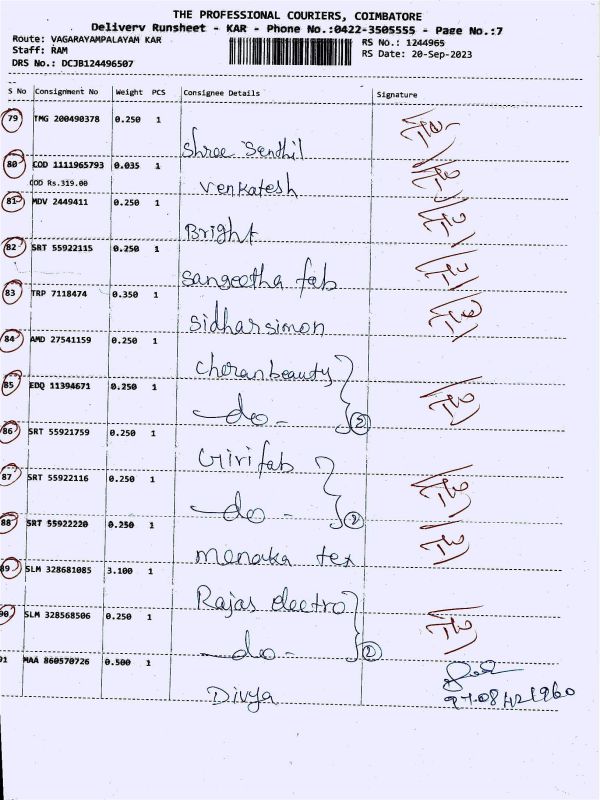 THE PROFESSIONAL COURIERS, COIMBATORE
Delivery Runsheet - KAR - Phone No.:0422-3505555 - Page No.:7
Route: VAGARAYAMPALAYAM KAR
RS No.: 1244965
Staff: RAM
RS Date: 20-Sep-2023
DRS No.: DCJB124496507
S No Consignment No Weight PCS Consignee Details Signature
79 TMG 200490378 0.250 1
Shree Senthil
80 COD 1111965793 0.035 1
COD Rs.319.00
Venkatesh
81 MDV 2449411 0.250 1
Bright
82 SRT 55922115 0.250 1
Sangeetha fab
83 TRP 7118474 0.350 1
Sidharsimon
84 AMD 27541159 0.250 1
Cheranbeauty
85 EDQ 11394671 0.250 1
-do- 2
86 SRT 55921759 0.250 1
Giri fab
87 SRT 55922116 0.250 1
-do- 2
88 SRT 55922220 0.250 1
menaka tex
89 SLM 328681085 3.100 1
Rajas electro
90 SLM 328568506 0.250 1
-do- 2
91 MAA 860570726 0.500 1
Divya